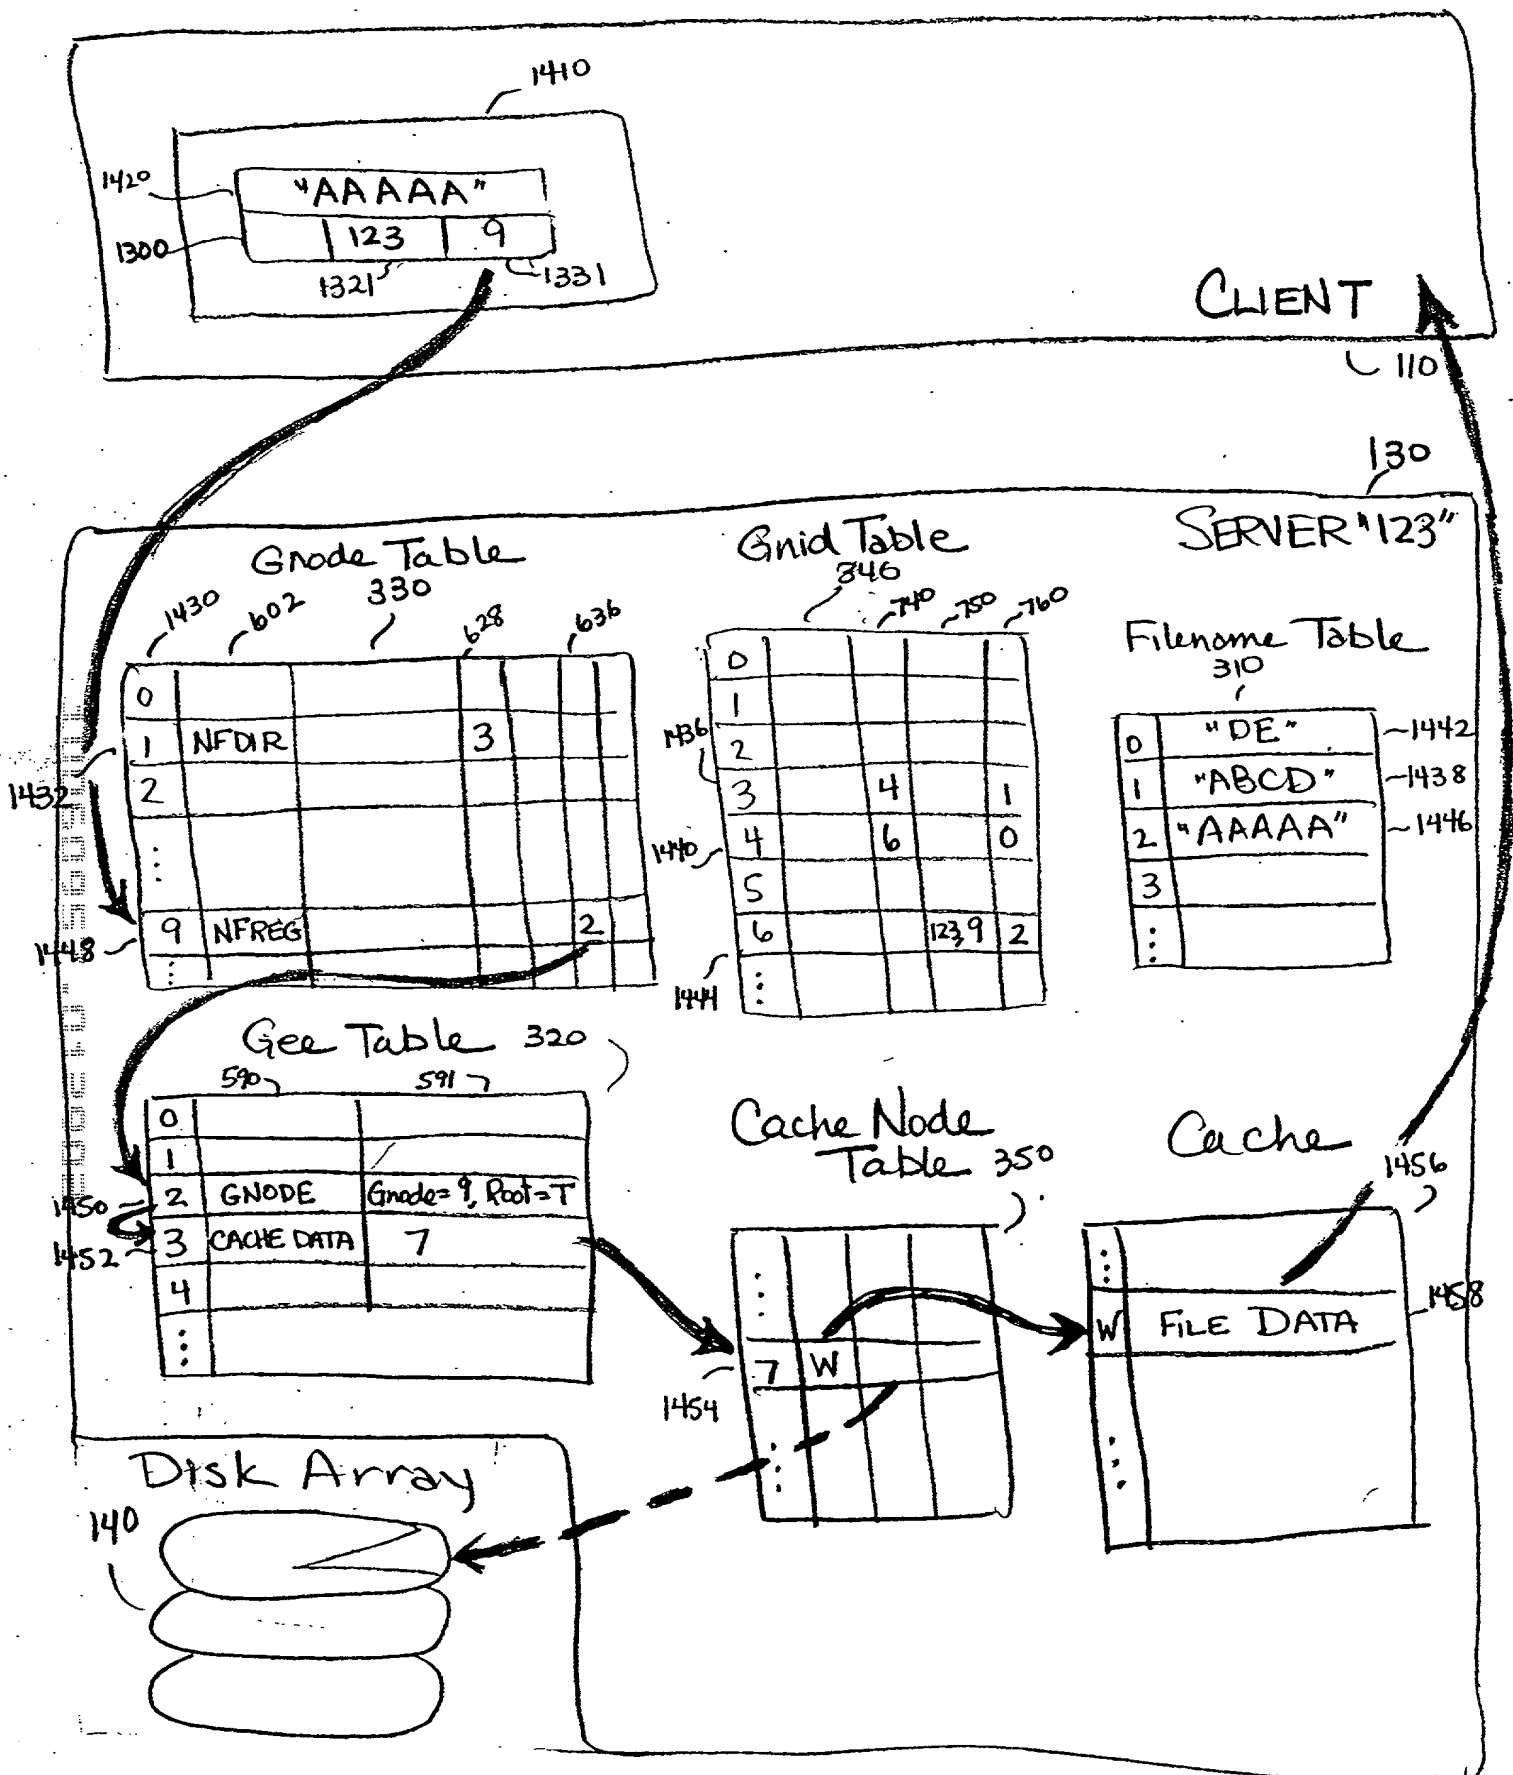 1410
1420
"AAAAA"
1300
123
9
1321
1331
CLIENT
110
130
SERVER "123"
Gnode Table
330
1430
602
628
636
0
1
NFDIR
3
1432
2
⋮
9
NFREG
2
1448
⋮
Gnid Table
346
740
750
760
0
1
1436
2
3
4
1
1440
4
6
0
5
6
123,9
2
1444
⋮
Filename Table
310
0
"DE"
1442
1
"ABCD"
1438
2
"AAAAA"
1446
3
⋮
Gee Table 320
590
591
0
1
1450
2
GNODE
Gnode=9, Root=T
1452
3
CACHE DATA
7
4
⋮
Cache Node
Table 350
⋮
7
W
1454
⋮
Cache
1456
⋮
W
FILE DATA
1458
⋮
Disk Array
140